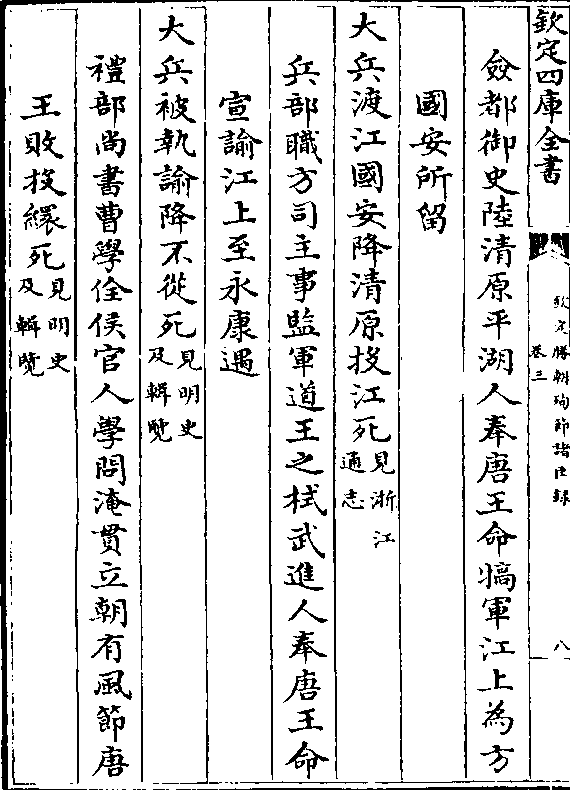 欽定四庫全書
欽定勝朝殉節諸臣錄
卷三
八
僉都御史陸清原平湖人奉唐王命犒軍江上為方
國安所留
大兵渡江國安降清原投江死見浙江
通志
兵部職方司主事監軍道王之栻武進人奉唐王命
宣諭江上至永康遇
大兵被執諭降不從死見明史
及輯覽
禮部尚書曹學佺侯官人學問淹貫立朝有風節唐
王敗投繯死見明史
及輯覽